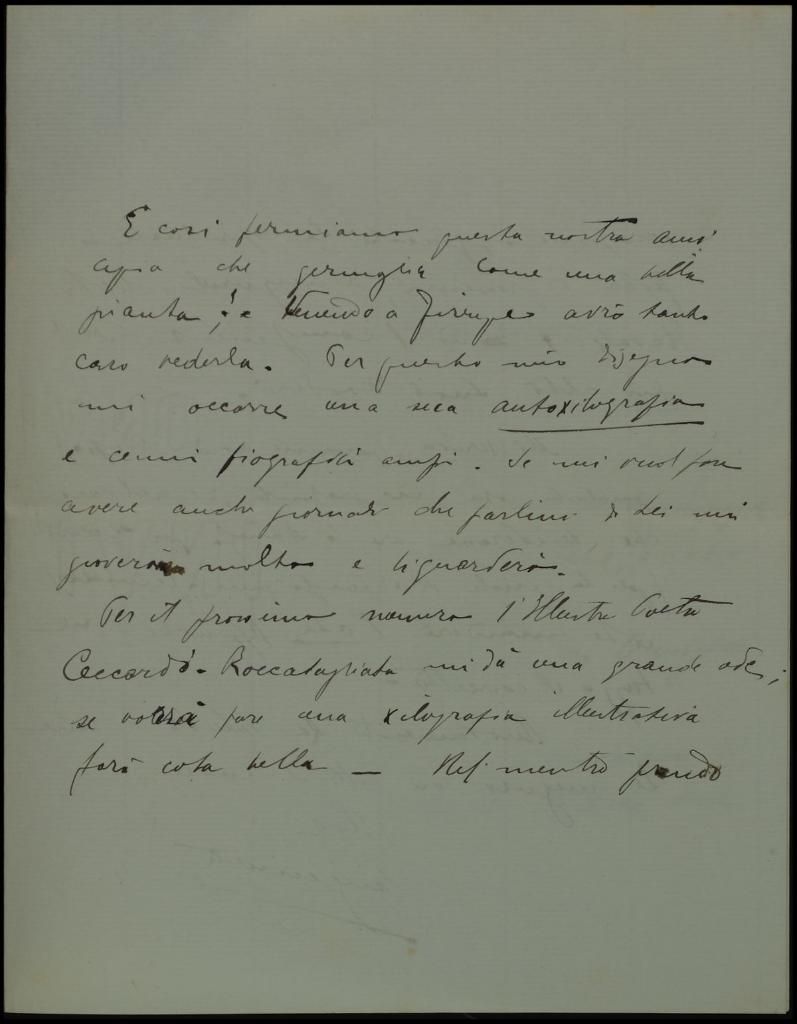 E così fermiamo questa nostra ami
cizia che germoglia come una bella
pianta! e venendo a Firenze avrò tanto
caro vederla. Per questo mio disegno
mi occorre una sua autoxilografia
e cenni biografici ampi. Se mi vuol fare
avere anche giornali che parlino di Lei mi
gioverà molto e
Per il prossimo numero l'Illustre Poeta
Ceccardo Roccatagliata mi dà una grande ode;
se vorrà fare una xilografia illustrativa
farà cosa bella — Nel mentre prendo